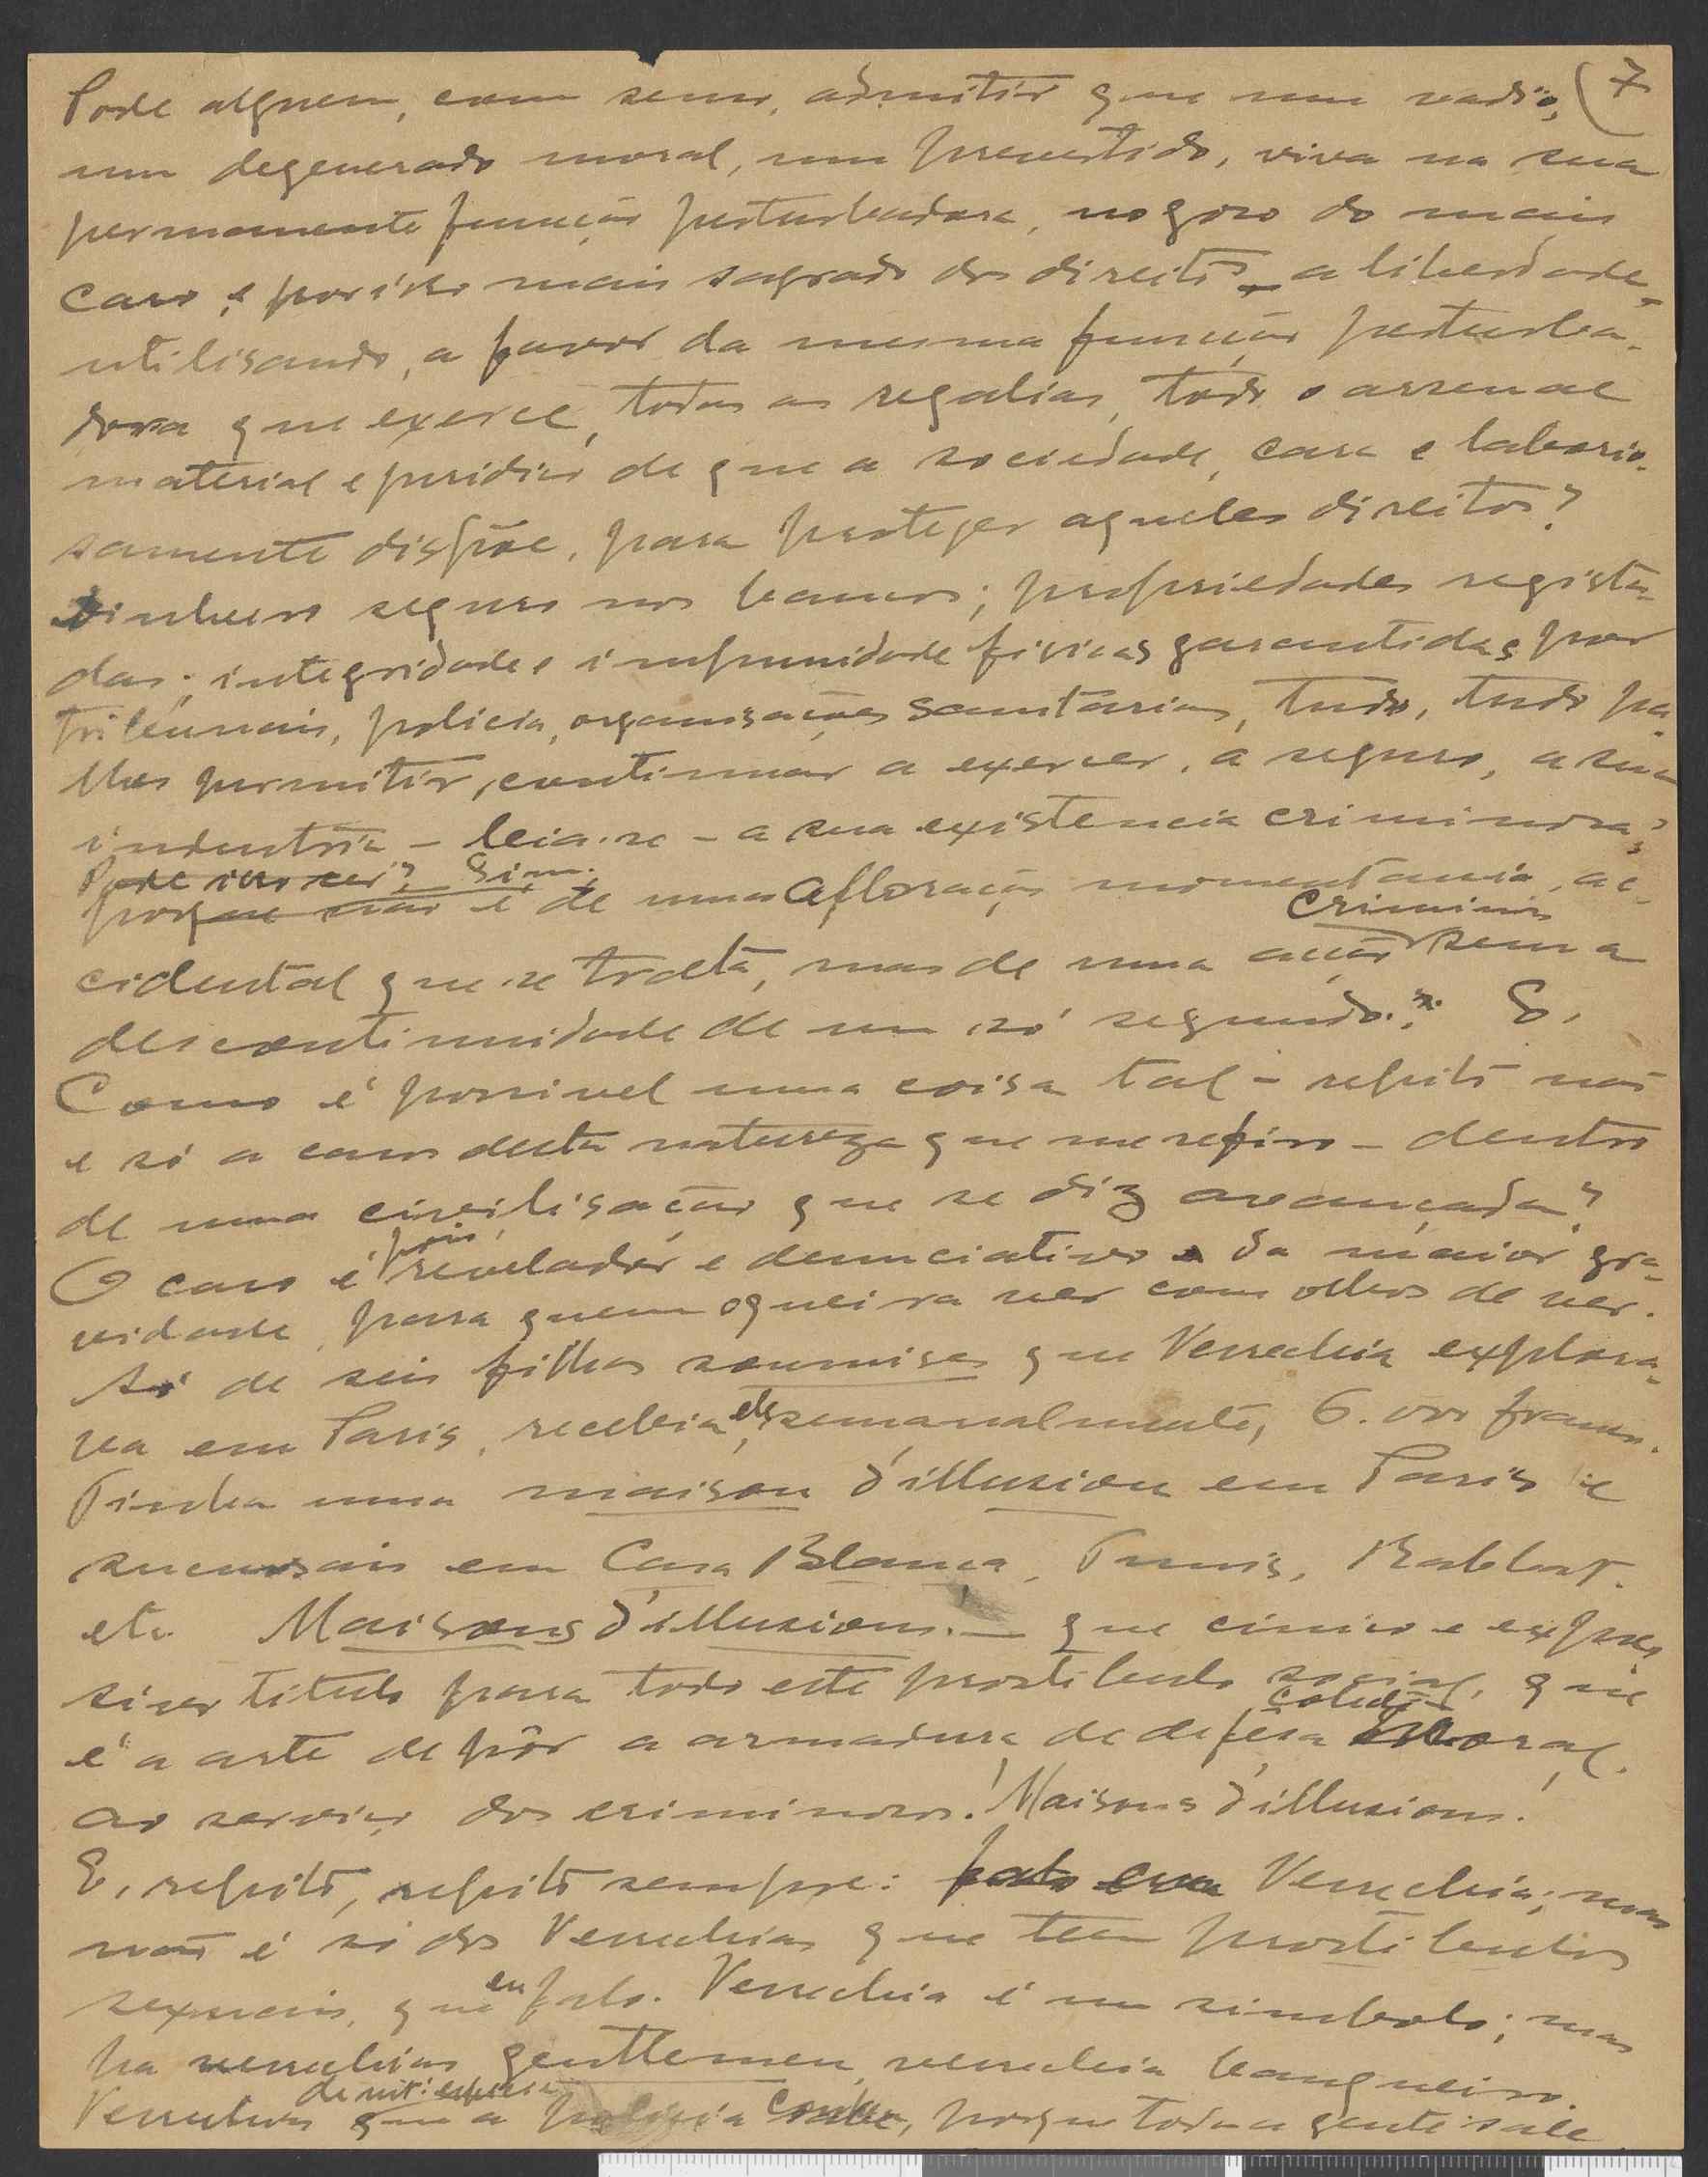 Pode alguem, com senso, admitir que um vadio, (7
um degenerado moral, um pervertido, viva na sua
permanente função perturbadora, no gozo do mais
caro e por isso mais sagrado dos direitos – a liberdade –
utilisando, a favor da mesma função perturba-
dora que exerce, todas as regalias, todo o arsenal
material e juridico de que a sociedade, cara e laborio-
samente dispõe, para proteger aqueles direitos?
Dinheiro seguro nos bancos; propriedades regista-
das; integridade e impunidade fisicas garantidas por
tribunais, policia, organisações sanitarias, tudo, tudo pa.
lhes permitir, continuar a exercer, a seguro, a sua
industria – leia-se – a sua existencia criminosa?
Pode isso ser? Sim.
porque não é de uma afloração momentania, ac-
criminosa
cidental que se trata, mas de uma acção sem a
descontinuidade de um só segundo. E,
Como é possivel uma coisa tal – repito não
é só a casos desta natureza que me refiro – dentro
de uma civilisação que se diz avançada?
pois,
O caso é revelador e denunciativo da maior gra-
vidade, para quem o queira ver com olhos de ver.
Só de seis filhas soumises que Verrechia explora-
va em Paris, recebia, ele, semanalmente, 6.000 francos.
Tinha uma maison d'illusion em Paris e
sucursais em Casa Blanca, Tunis, Rabbat.
etc. Maisons d'illusions. – que cinico e expres
sivo titulo para todo este prostibulo social, que
colectiva
é a arte de pôr a armadura de defêsa moral.
ao serviço dos criminosos! Maisons d'illusions!
E, repito, repito sempre: falo em Verrechia; mas
não é só dos Verrechias que tem prostibulos
sexuais, que em falo. Verrechia é um simbolo; mas
ha verrechias gentlemen, verrechia banqueiro.
Verrechias que a policia conhece, porque toda a gente sabe